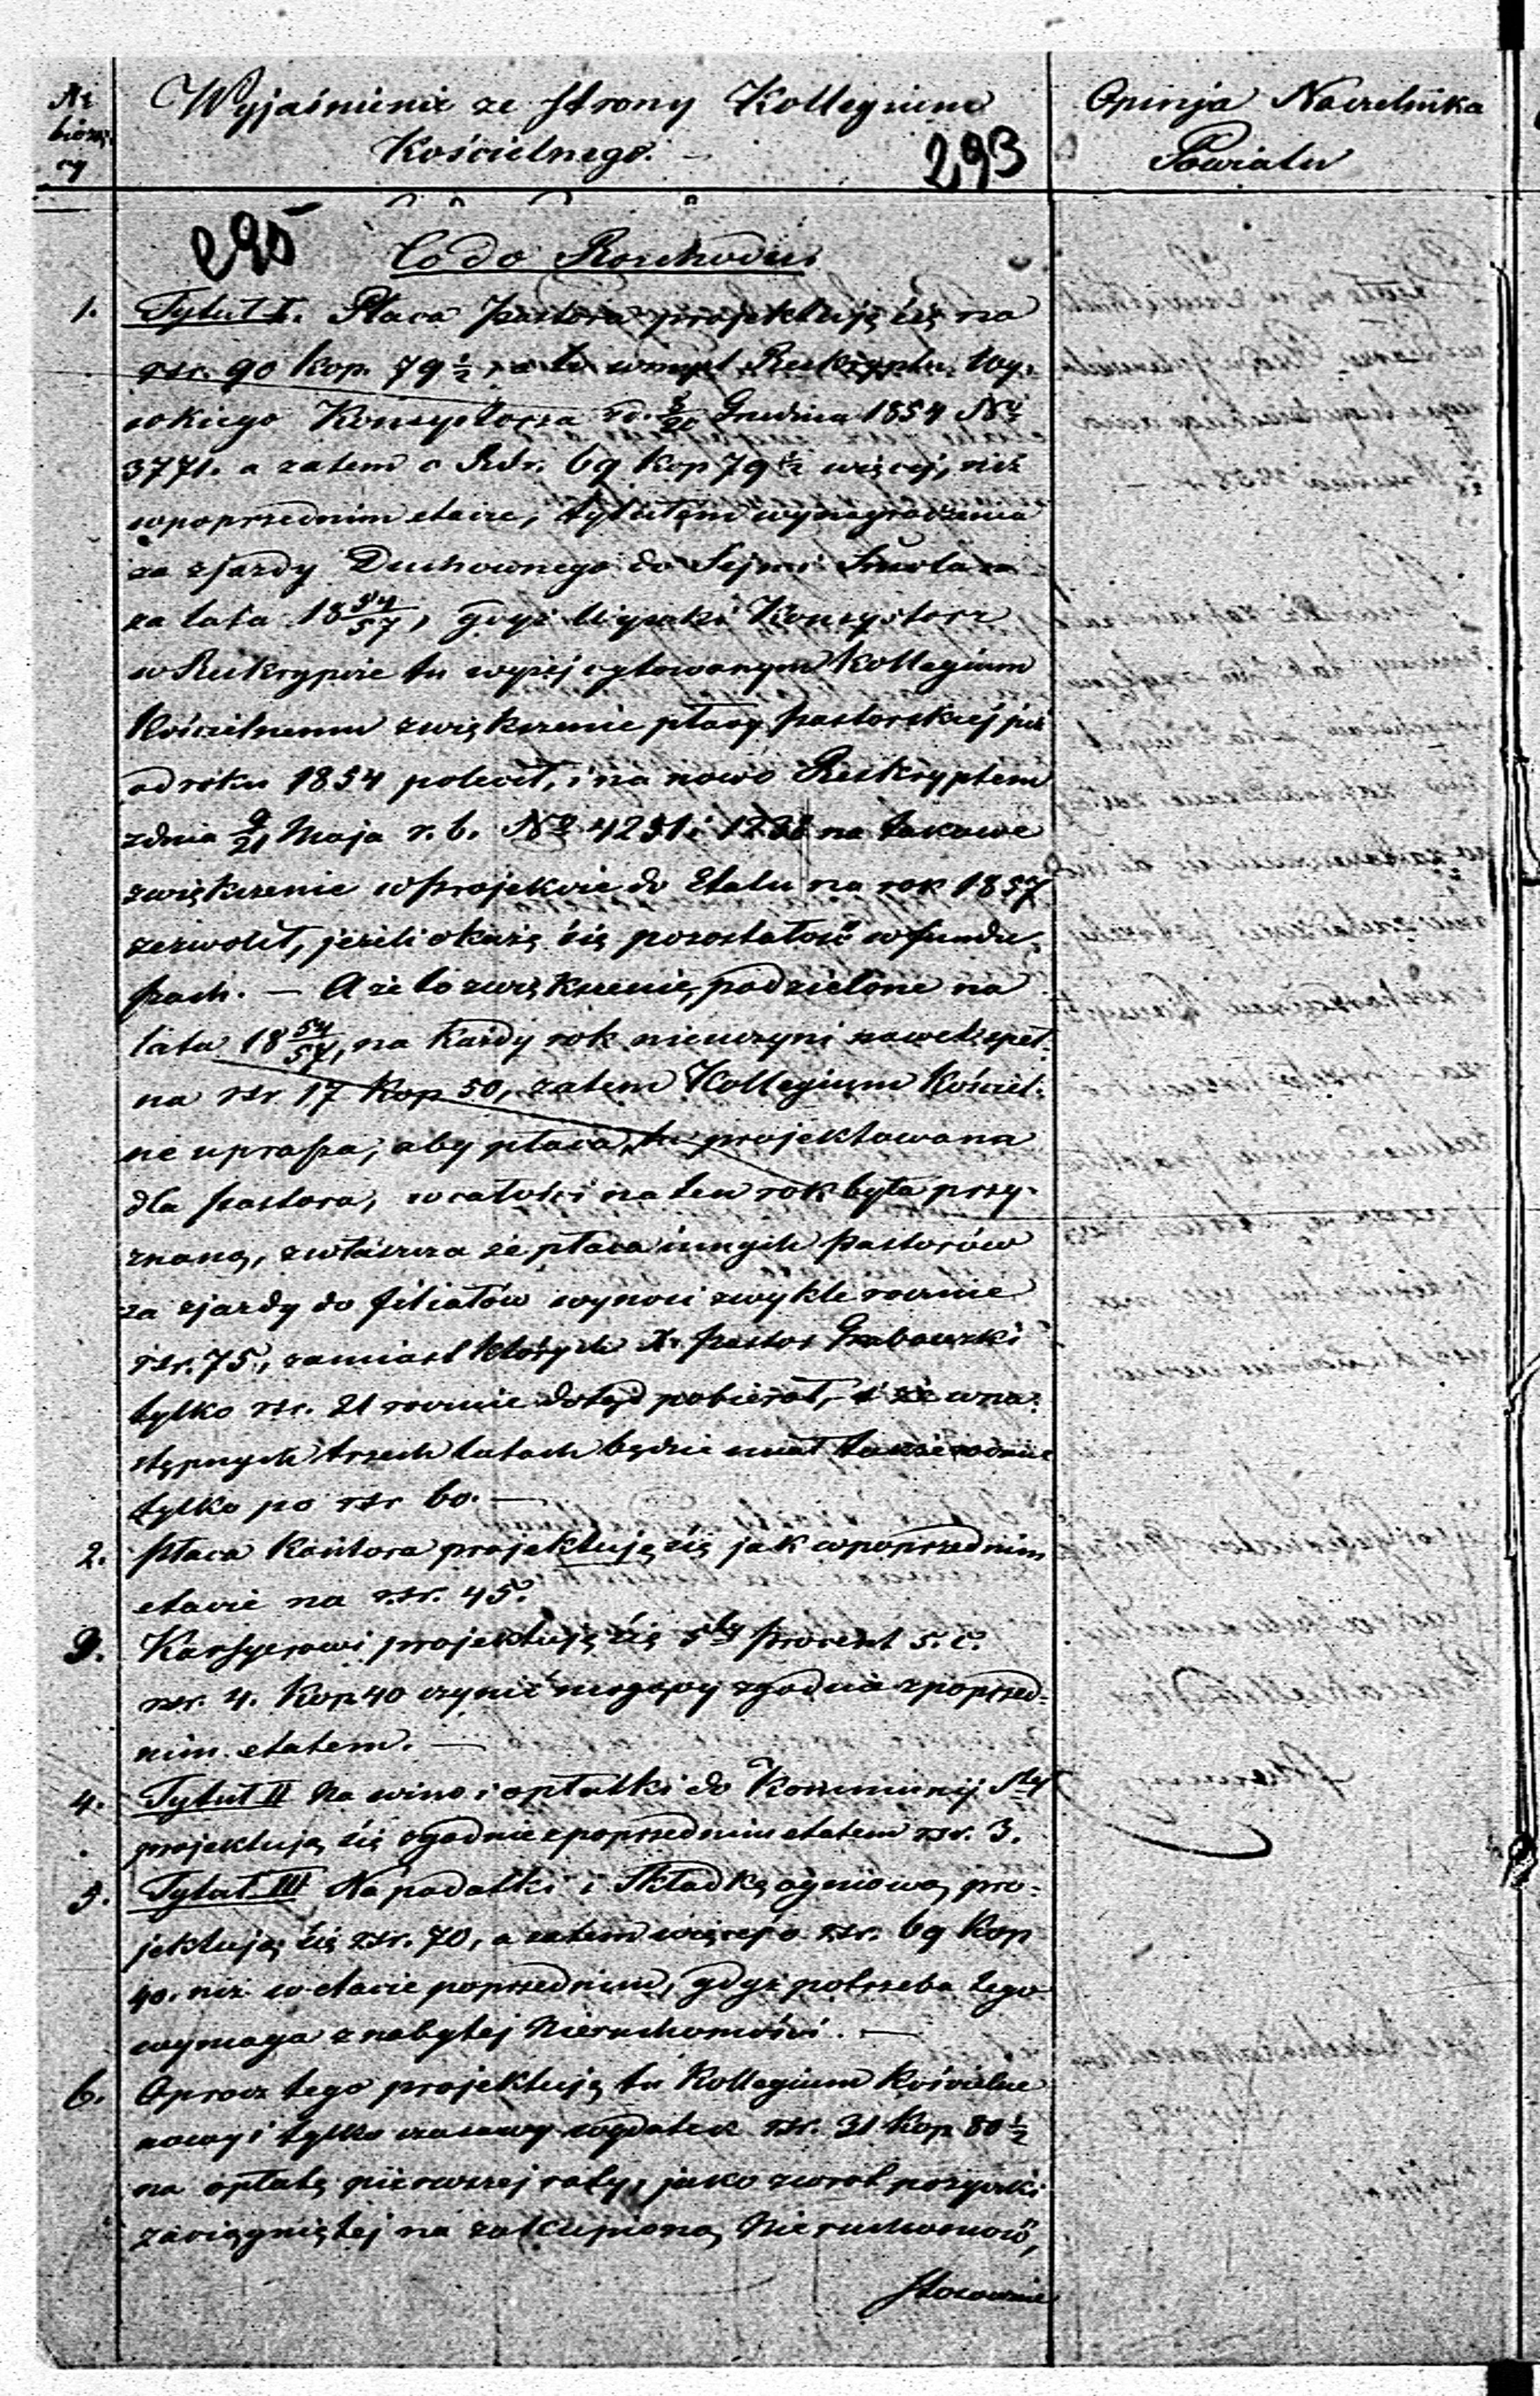 Nr bieżący
Wyjaśnienie ze strony Kollegium
Kościelnego. –
293
Opinja Naczelnika
Powiatu
295
Co do Rozchodu.
1. Tytuł I. Płaca pastora projektuję się na
rsr. 90 kop. 79 ½, a to wmyśl Reskryptu Wy-
sokiego Konsystorza zd. 8/20 Grudnia 1854 No
3771. a zatem o Rsr. 69 kop 79 ½ więcej, niż
wpoprzednim etacie, tytułem wynagrodzenia
za zjazdy Duchownego do Sejn i Suwałk
za lata 18 54/57, gdyż Wysoki Konsystorz
w Reskrypcie tu wyżej cytowanym Kollegium
Kościelnemu zwiększenie płacy pastorskiej już
od roku 1854 polecił, i na nowo Reskryptem
zdnia 9/21 Maja r. b. No 4251 i na takowe
zwiększenie w projekcie do Etatu na rok 1857
zezwolił, jeżeli okażę się pozostałość w fundu-
szach. – A że to zwiększenie, podzielone na
lata 18 54/57, na każdy rok nieuczyni nawet zpeł-
na rsr 17 kop 50, zatem Kollegium Kościel-
ne uprasza, aby płaca tu projektowana
dla pastora, w całości na ten rok była przy-
znaną, zwłaszcza że płaca innych pastorów
za zjazdy do filiałów wynosi zwykle rocznie
rsr. 75, zamiast których X. Pastor Grabowski
tylko rsr. 21 rocznie dotąd pobierał, i że wna-
stępnych trzech latach będzie miał rocznie
tylko po rsr 60. –
2. Płaca kantora projektuję się jak wpoprzednim
etacie na rsr. 45.
3. Kassyerowi projektuję się 5ty procent s. c.
rsr. 4. kop 40 czynić mogący zgodnie zpoprzed-
nim etatem. –
4. Tytuł II Na wino i opłatki do Kommunij Stej
projektują się zgodnie zpoprzednim etatem rsr. 3.
5. Tytuł III Na podatki i Składkę ogniową pro-
jektują się rsr. 70, a zatem więcej o rsr. 69 kop
40. niż w etacie poprzednim, gdyż potrzeba tego
wymaga z nabytej Nieruchomości. –
6. Oprócz tego projektuję tu Kollegium Kościelne
nowy i tylko czasowy wydatek rsr. 31 kop 80 ½
na opłatę pierwszej raty, jako zwrot pożyczki
zaciągniętej na zakupioną Nieruchomość,
stosownie